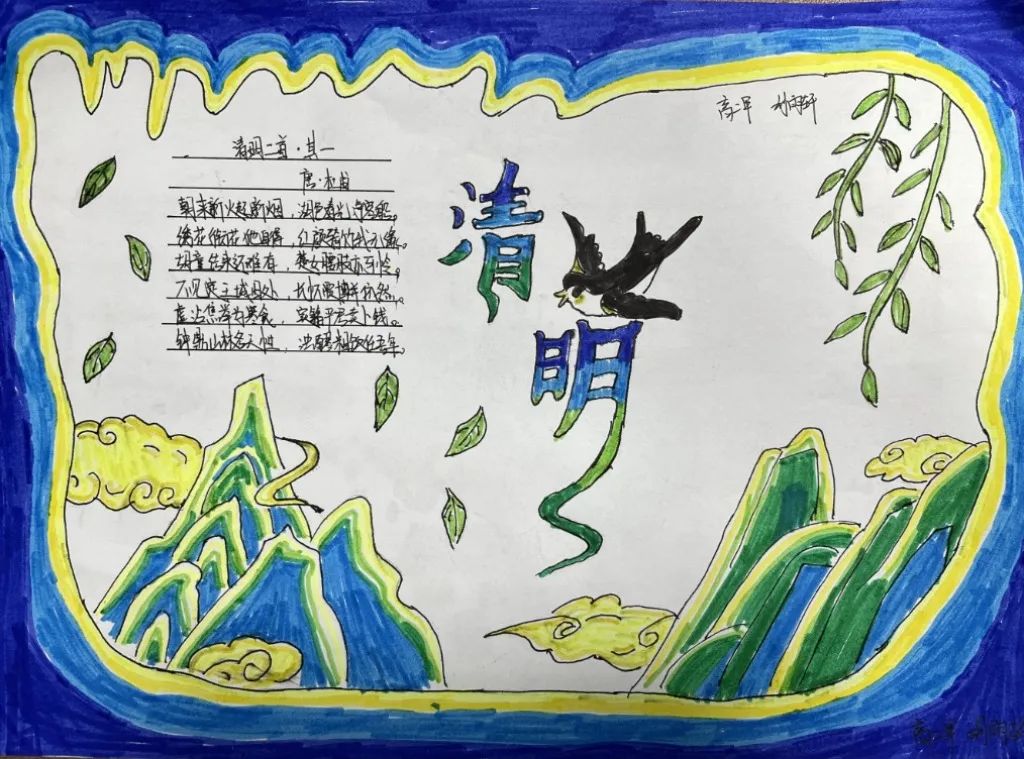 清明二首·其一
唐·杜甫
朝来新火起新烟，湖色春光净客船。
绣花衔花他自得，红颜骑竹我无缘。
胡童结束还难有，楚女腰肢亦可怜。
不见定王城旧处，长怀贾傅井依然。
虚沾焦举为寒食，实藉君卖卜钱。
钟鼎山林各天性，浊醪粗饭任吾年。
清
明